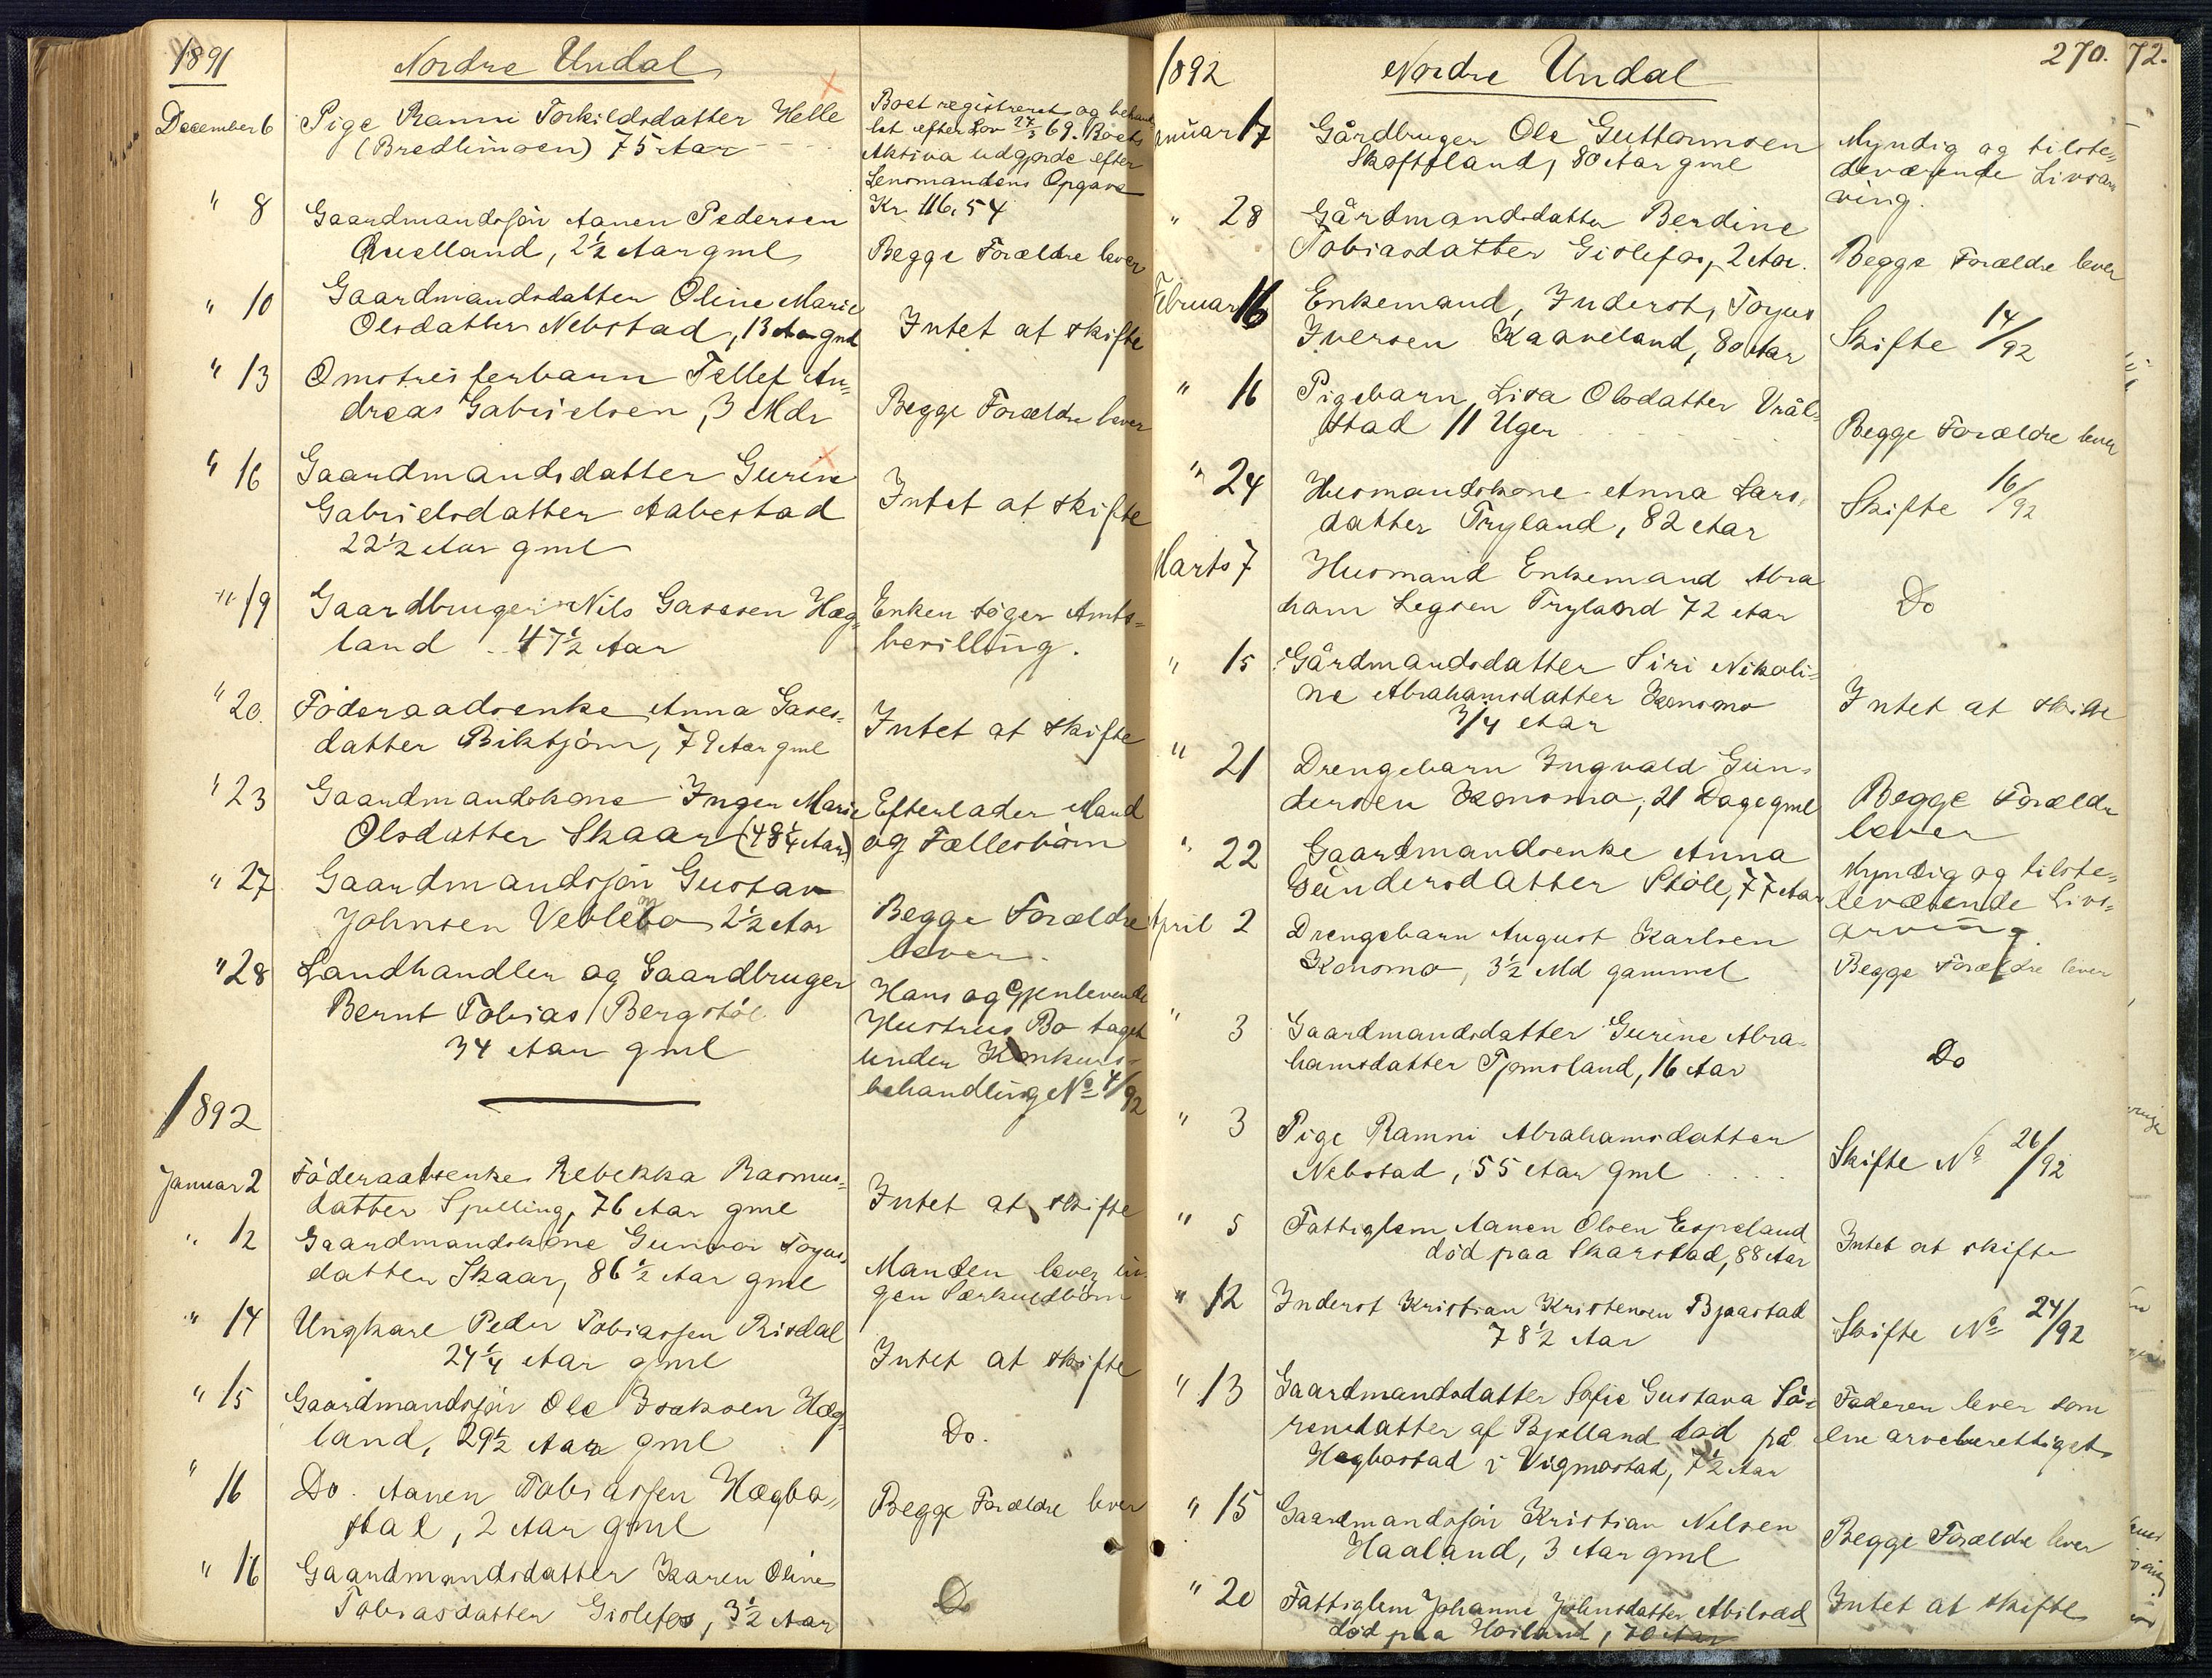 1891
Nordre Undal
December 6
Pige Ranni Torkildsdatter Helle
(Bredlimoen) 75 Aar
Boet registreret og behand
let efter Lov 27/3 69. Boets
Aktiva udgjorde efter
Lensmandens Opgave
Kr. 116,54
" 8
Gaardmandssøn Aanen Pedersen
Qvelland, 2½ Aar gml
Begge Forældre lever
" 10
Gaardmandsdatter Oline Marie
Olsdatter Nebstad, 13 Aar gml
Intet at skifte
" 13
Omstreiferbarn Tellef An=
dreas Gabrielsen, 3 Mdr
Begge Forældre lever
" 16
Gaardmandsdatter Gurine
Gabrielsdatter Aabestad
22½ Aar gml
Intet at skifte
" 19
Gaardbruger Nils Gasesen Hæg=
land 47½ Aar
Enken søger Amts=
bevilling.
" 20.
Føderaadsenke Anna Gases=
datter Birktjøm, 79 Aar gml
Intet at skifte
" 23
Gaardmandskone Inger Marie
Olsdatter Skaar (48¼ Aar)
Efterlader Mand
og Fællesbørn
" 27
Gaardmandssøn Gustav
Johnsen Veblebo 2½ Aar
Begge Forældre
lever.
" 28
Landhandler og Gaardbruger
Bernt Tobias Bergstøl
34 Aar gml
Hans og Gjenlevende
Hustrus Bo taget
under Konkurs-
behandling No 4/92
1892
Januar 2
Føderaadsenke Rebekka Rasmus=
datter Spilling, 76 Aar gml
Intet at skifte
" 12
Gaardmandskone Gunvor Tojus=
datter Skaar, 86½ Aar gml
Manden lever in=
gen Særkuldbørn
" 14
Ungkarl Peder Tobiassen Risdal
24¼ Aar gml
Intet at skifte
" 15
Gaardmandssøn Ole Isaksen Hæg=
land, 29½ Aar gml
Do.
" 16
Do. Aanen Tobiassen Hægbo=
stad, 2 Aar gml
Begge Forældre lever
" 16
Gaardmandsdatter Karen Oline
Tobiasdatter Gislefos, 3½ Aar
Do
1892
Nordre Undal
270.
72.
anuar 17
Gårdbruger Ole Guttormsen
Skofteland, 80 Aar gml
Myndig og tilste=
deværende Livsar
ving.
" 28
Gårdmandsdatter Berdine
Tobiasdatter Gislefos, 2 Aar.
Begge Forældre lever
Februar 16
Enkemand, Inderst, Tojus
Iversen Kaaveland, 80 Aar
Skifte 14/92
" 16
Pigebarn Lisa Olsdatter Vrål=
stad 11 Uger
Begge Forældre lever
" 24
Husmandskone Anna Lars=
datter Tryland, 82 Aar
Skifte 16/92
Marts 7
Husmand Enkemand Abra
ham Legsen Tryland 72 Aar
Do
" 15
Gårdmandsdatter Siri Nikoli=
ne Abrahamsdatter Konsmo
3/4 Aar
Intet at skifte
" 21
Drengebarn Ingvald Gun=
dersen Konsmo, 21 Dage gml
Begge Forældre
lever
" 22
Gaardmandsenke Anna
Gundersdatter Støle, 77 Aar
Myndig og tilste=
deværende Livs=
arving.
April 2
Drengebarn August Karlsen
Konsmo, 3½ Md gammel
Begge Forældre lever
" 3
Gaardmandsdatter Gurine Abra=
hamsdatter Tjomsland, 16 Aar
Do
" 3
Pige Ramni Abrahamsdatter
Nebstad, 55 Aar gml
Skifte No 26/92
" 5
Fattiglem Aanen Olsen Espeland
død paa Skarstad, 88 Aar
Intet at skifte
" 12
Inderst Kristian Kristensen Bjaastad
78½ Aar
Skifte No 24/92
" 13
Gaardmandsdatter Sofie Gustava Sø=
rensdatter af Bjelland død på
Hægbostad i Vigmostad, 7½ Aar
Faderen lever som
ene arveberettiget
" 15
Gaardmandssøn Kristian Nilsen
Haaland, 3 Aar gml
Begge Forældre lever
" 20
Fattiglem Johanne Johnsdatter Abilsaas
død paa Høiland, 70 Aar
Intet at skifte